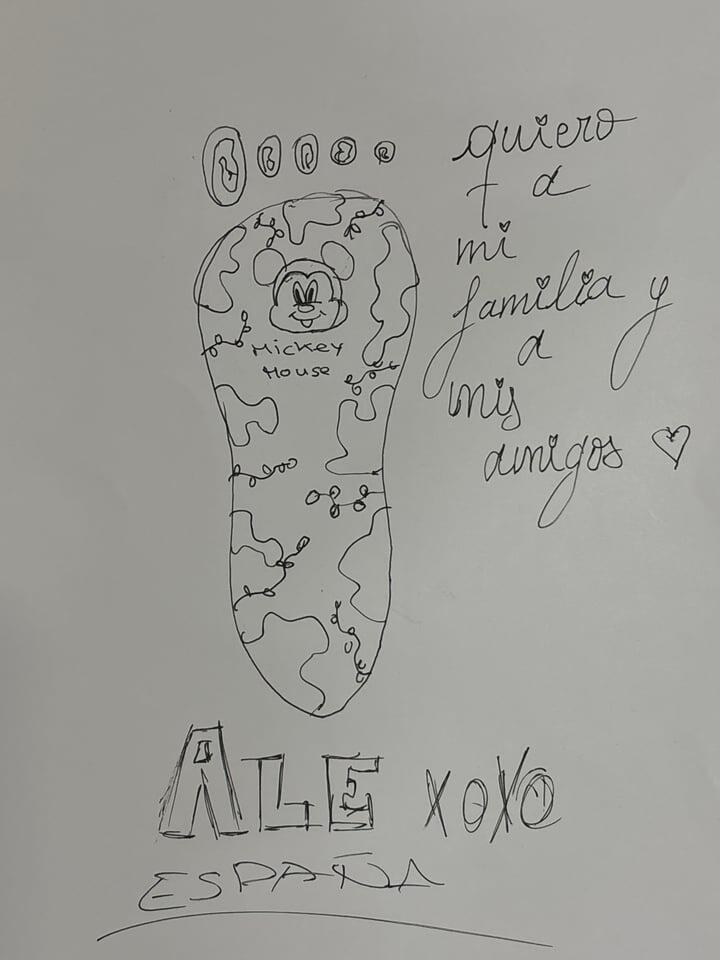 quiero
+ a
mi
familia y
a
mis
amigos ♡
Mickey
House
ALE XOXO
ESPAÑA